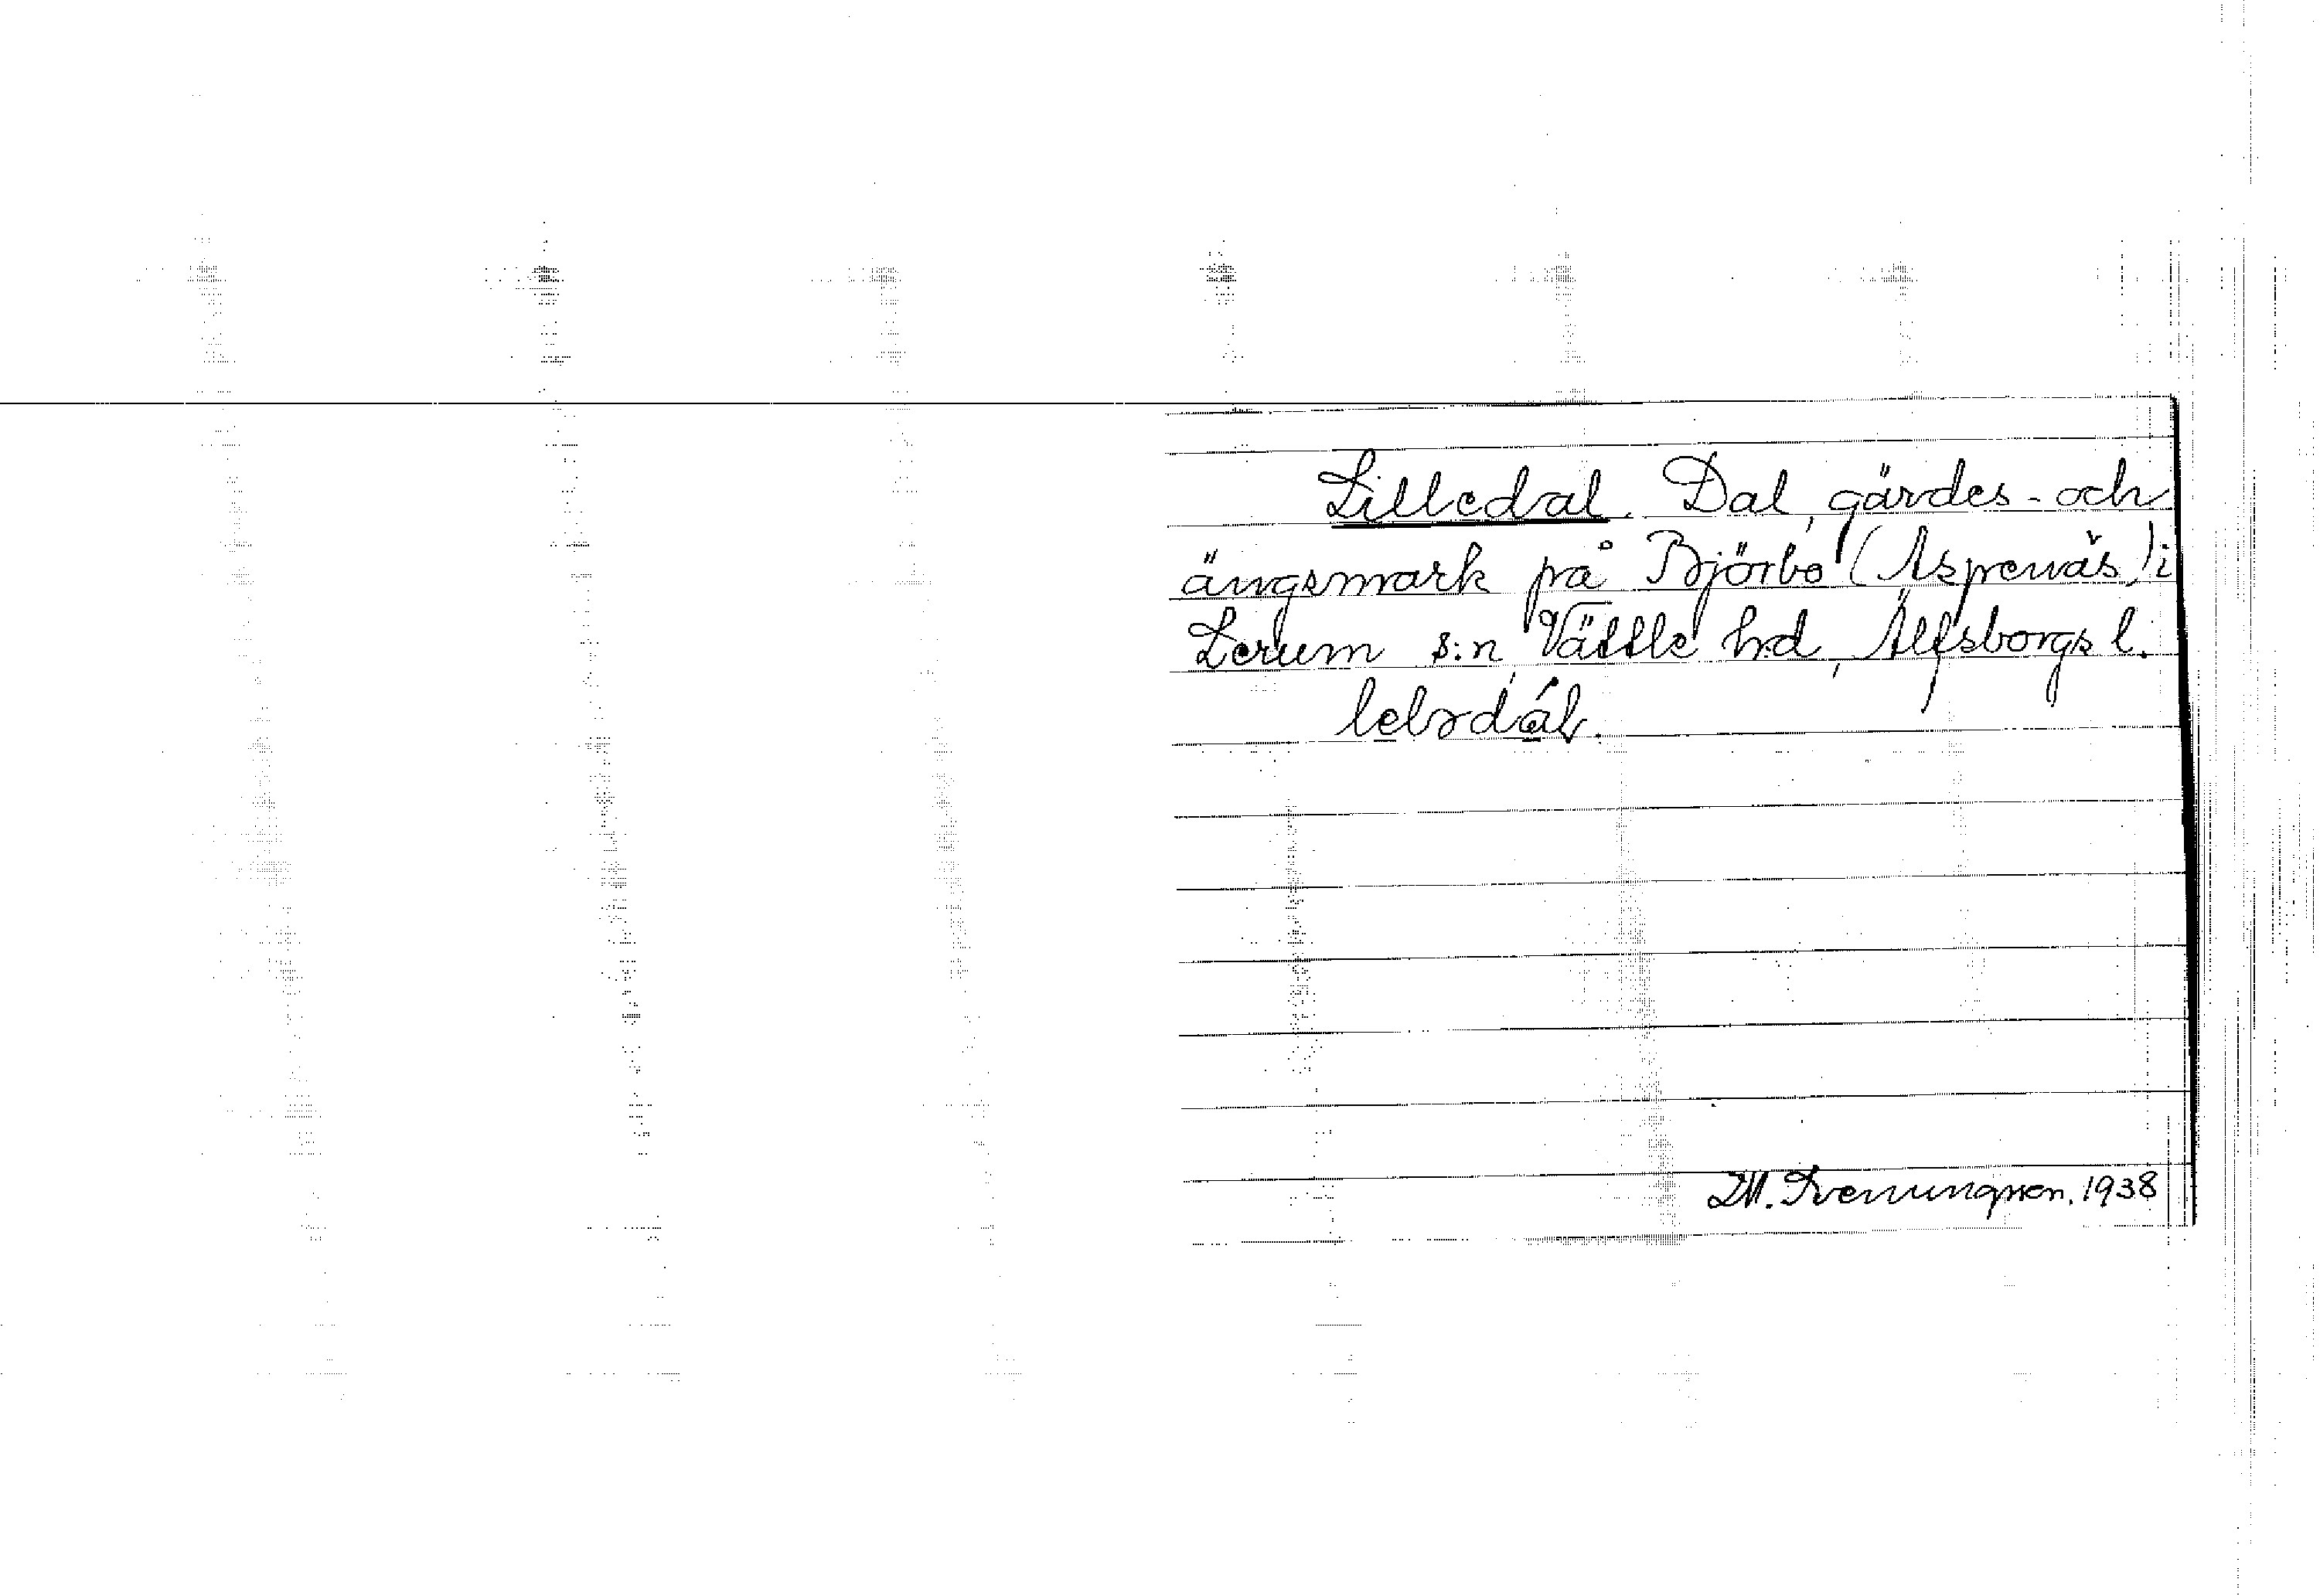 Lilledal. Dal, gärdes- och
ängsmark på Björbo (Aspenäs) i
Lerum s:n, Vättle hd, Älfsborgs l.
M. Svenungsson. 1938